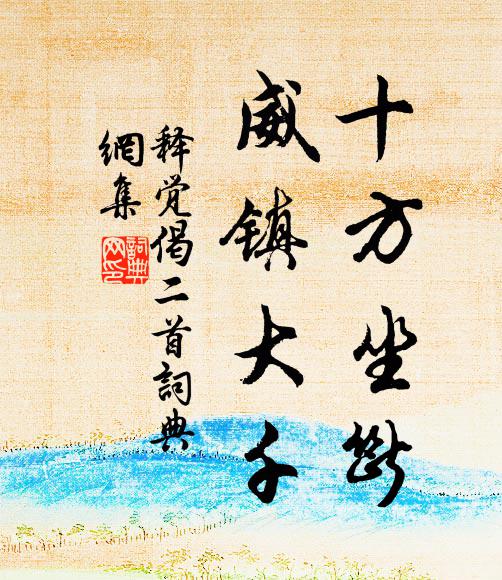 十方坐断
威镇大千
释觉偈二首词典
網集
詞典
网印